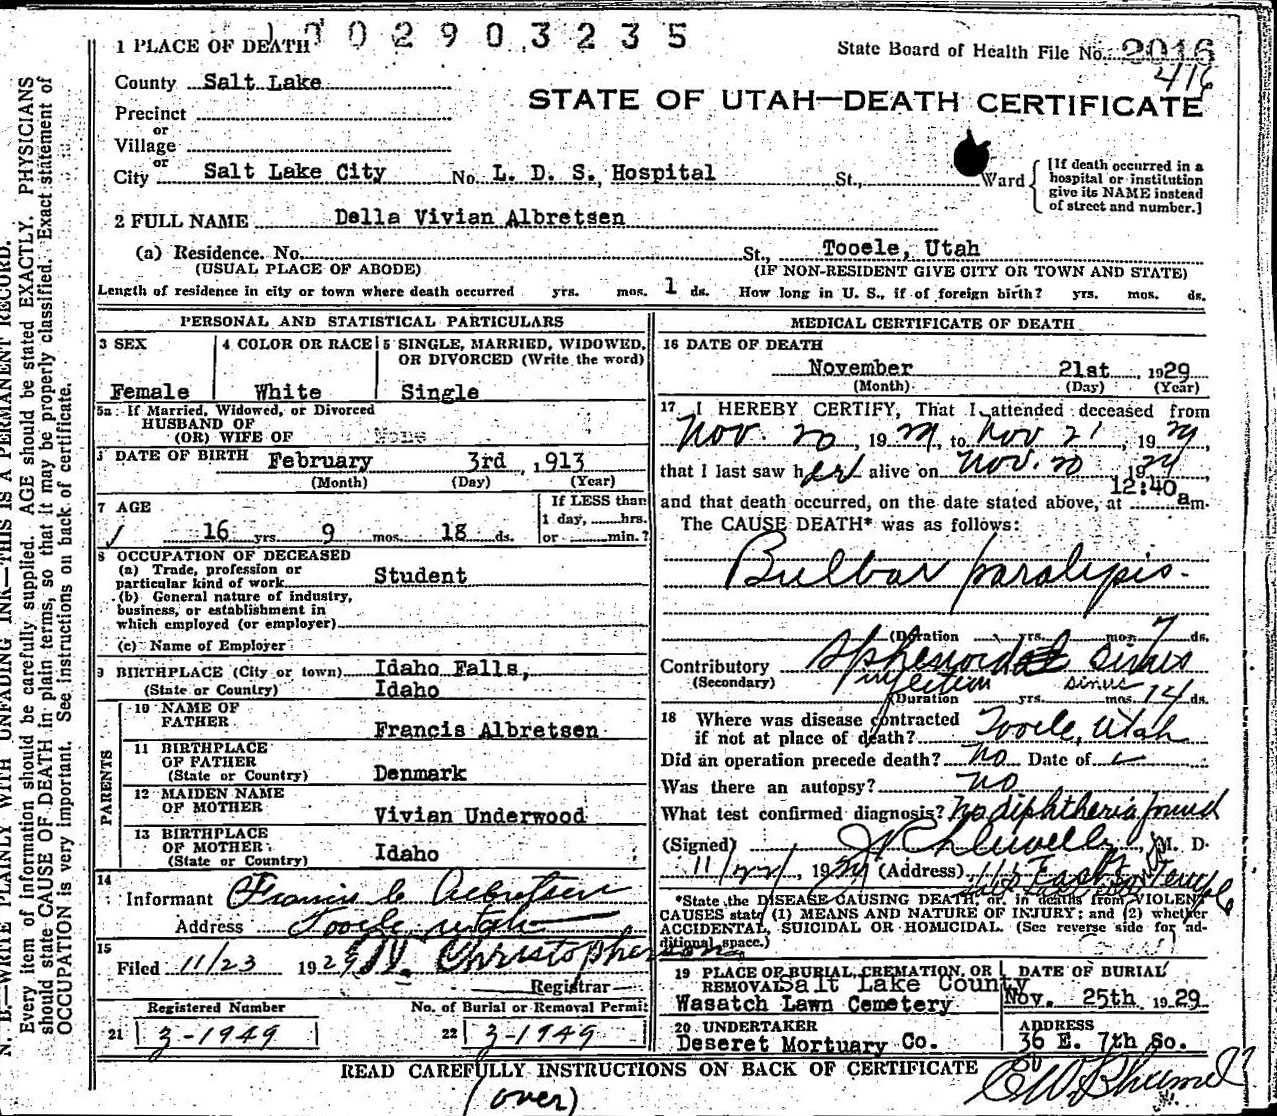 1002903235
1 PLACE OF DEATH
State Board of Health File No. 2016
County Salt Lake
2416
STATE OF UTAH—DEATH CERTIFICATE
Precinct
or
Village
or
City Salt Lake City No. L. D. S. Hospital St., Ward
[If death occurred in a
hospital or institution
give its NAME instead
of street and number.]
2 FULL NAME Della Vivian Albretsen
(a) Residence. No. St., Tooele, Utah
(USUAL PLACE OF ABODE) (IF NON-RESIDENT GIVE CITY OR TOWN AND STATE)
Length of residence in city or town where death occurred yrs. mos. 1 ds. How long in U. S., if of foreign birth? yrs. mos. ds.
PERSONAL AND STATISTICAL PARTICULARS
3 SEX
Female
4 COLOR OR RACE
White
5 SINGLE, MARRIED, WIDOWED,
OR DIVORCED (Write the word)
Single
5a If Married, Widowed, or Divorced
HUSBAND OF
(OR) WIFE OF None
DATE OF BIRTH February 3rd, 1913
(Month) (Day) (Year)
7 AGE
16 yrs. 9 mos. 18 ds.
If LESS than
1 day, hrs.
or min.?
8 OCCUPATION OF DECEASED
(a) Trade, profession or
particular kind of work Student
(b) General nature of industry,
business, or establishment in
which employed (or employer)
(c) Name of Employer
9 BIRTHPLACE (City or town) Idaho Falls,
(State or Country) Idaho
PARENTS
10 NAME OF
FATHER Francis Albretsen
11 BIRTHPLACE
OF FATHER
(State or Country) Denmark
12 MAIDEN NAME
OF MOTHER Vivian Underwood
13 BIRTHPLACE
OF MOTHER
(State or Country) Idaho
14
Informant Francis C Albretsen
Address Tooele Utah
15
Filed 11/23 1929 Christopherson
Registrar
Registered Number
21 3-1949
No. of Burial or Removal Permit
22 3-1949
MEDICAL CERTIFICATE OF DEATH
16 DATE OF DEATH
November 21st 1929
(Month) (Day) (Year)
17 I HEREBY CERTIFY, That I attended deceased from
Nov. 20, 1929, to Nov 21, 1929,
that I last saw her alive on Nov. 20 1929
12:40
and that death occurred, on the date stated above, at am.
The CAUSE DEATH* was as follows:
Bulbar paralysis.
(Duration yrs. mos. 7 ds.
Contributory Sphenoid Sinus
(Secondary) infection sinus
(Duration yrs. mos. 14 ds.
18 Where was disease contracted
if not at place of death? Tooele, Utah
Did an operation precede death? No Date of
Was there an autopsy? No
What test confirmed diagnosis? No diphtheria found
(Signed) M. D.
11/22/, 1929 (Address) 115 East Temple
*State the DISEASE CAUSING DEATH, or, in deaths from VIOLENT
CAUSES state (1) MEANS AND NATURE OF INJURY; and (2) whether
ACCIDENTAL, SUICIDAL OR HOMICIDAL. (See reverse side for ad-
ditional space.)
19 PLACE OF BURIAL, CREMATION, OR
REMOVAL Salt Lake County
Wasatch Lawn Cemetery
DATE OF BURIAL
Nov. 25th 1929
20 UNDERTAKER
Deseret Mortuary Co.
ADDRESS
36 E. 7th So.
READ CAREFULLY INSTRUCTIONS ON BACK OF CERTIFICATE
(over)
N. B.—WRITE PLAINLY WITH UNFADING INK—THIS IS A PERMANENT RECORD.
Every item of information should be carefully supplied. AGE should be stated EXACTLY. PHYSICIANS
should state CAUSE OF DEATH in plain terms, so that it may be properly classified. Exact statement of
OCCUPATION is very important. See instructions on back of certificate.